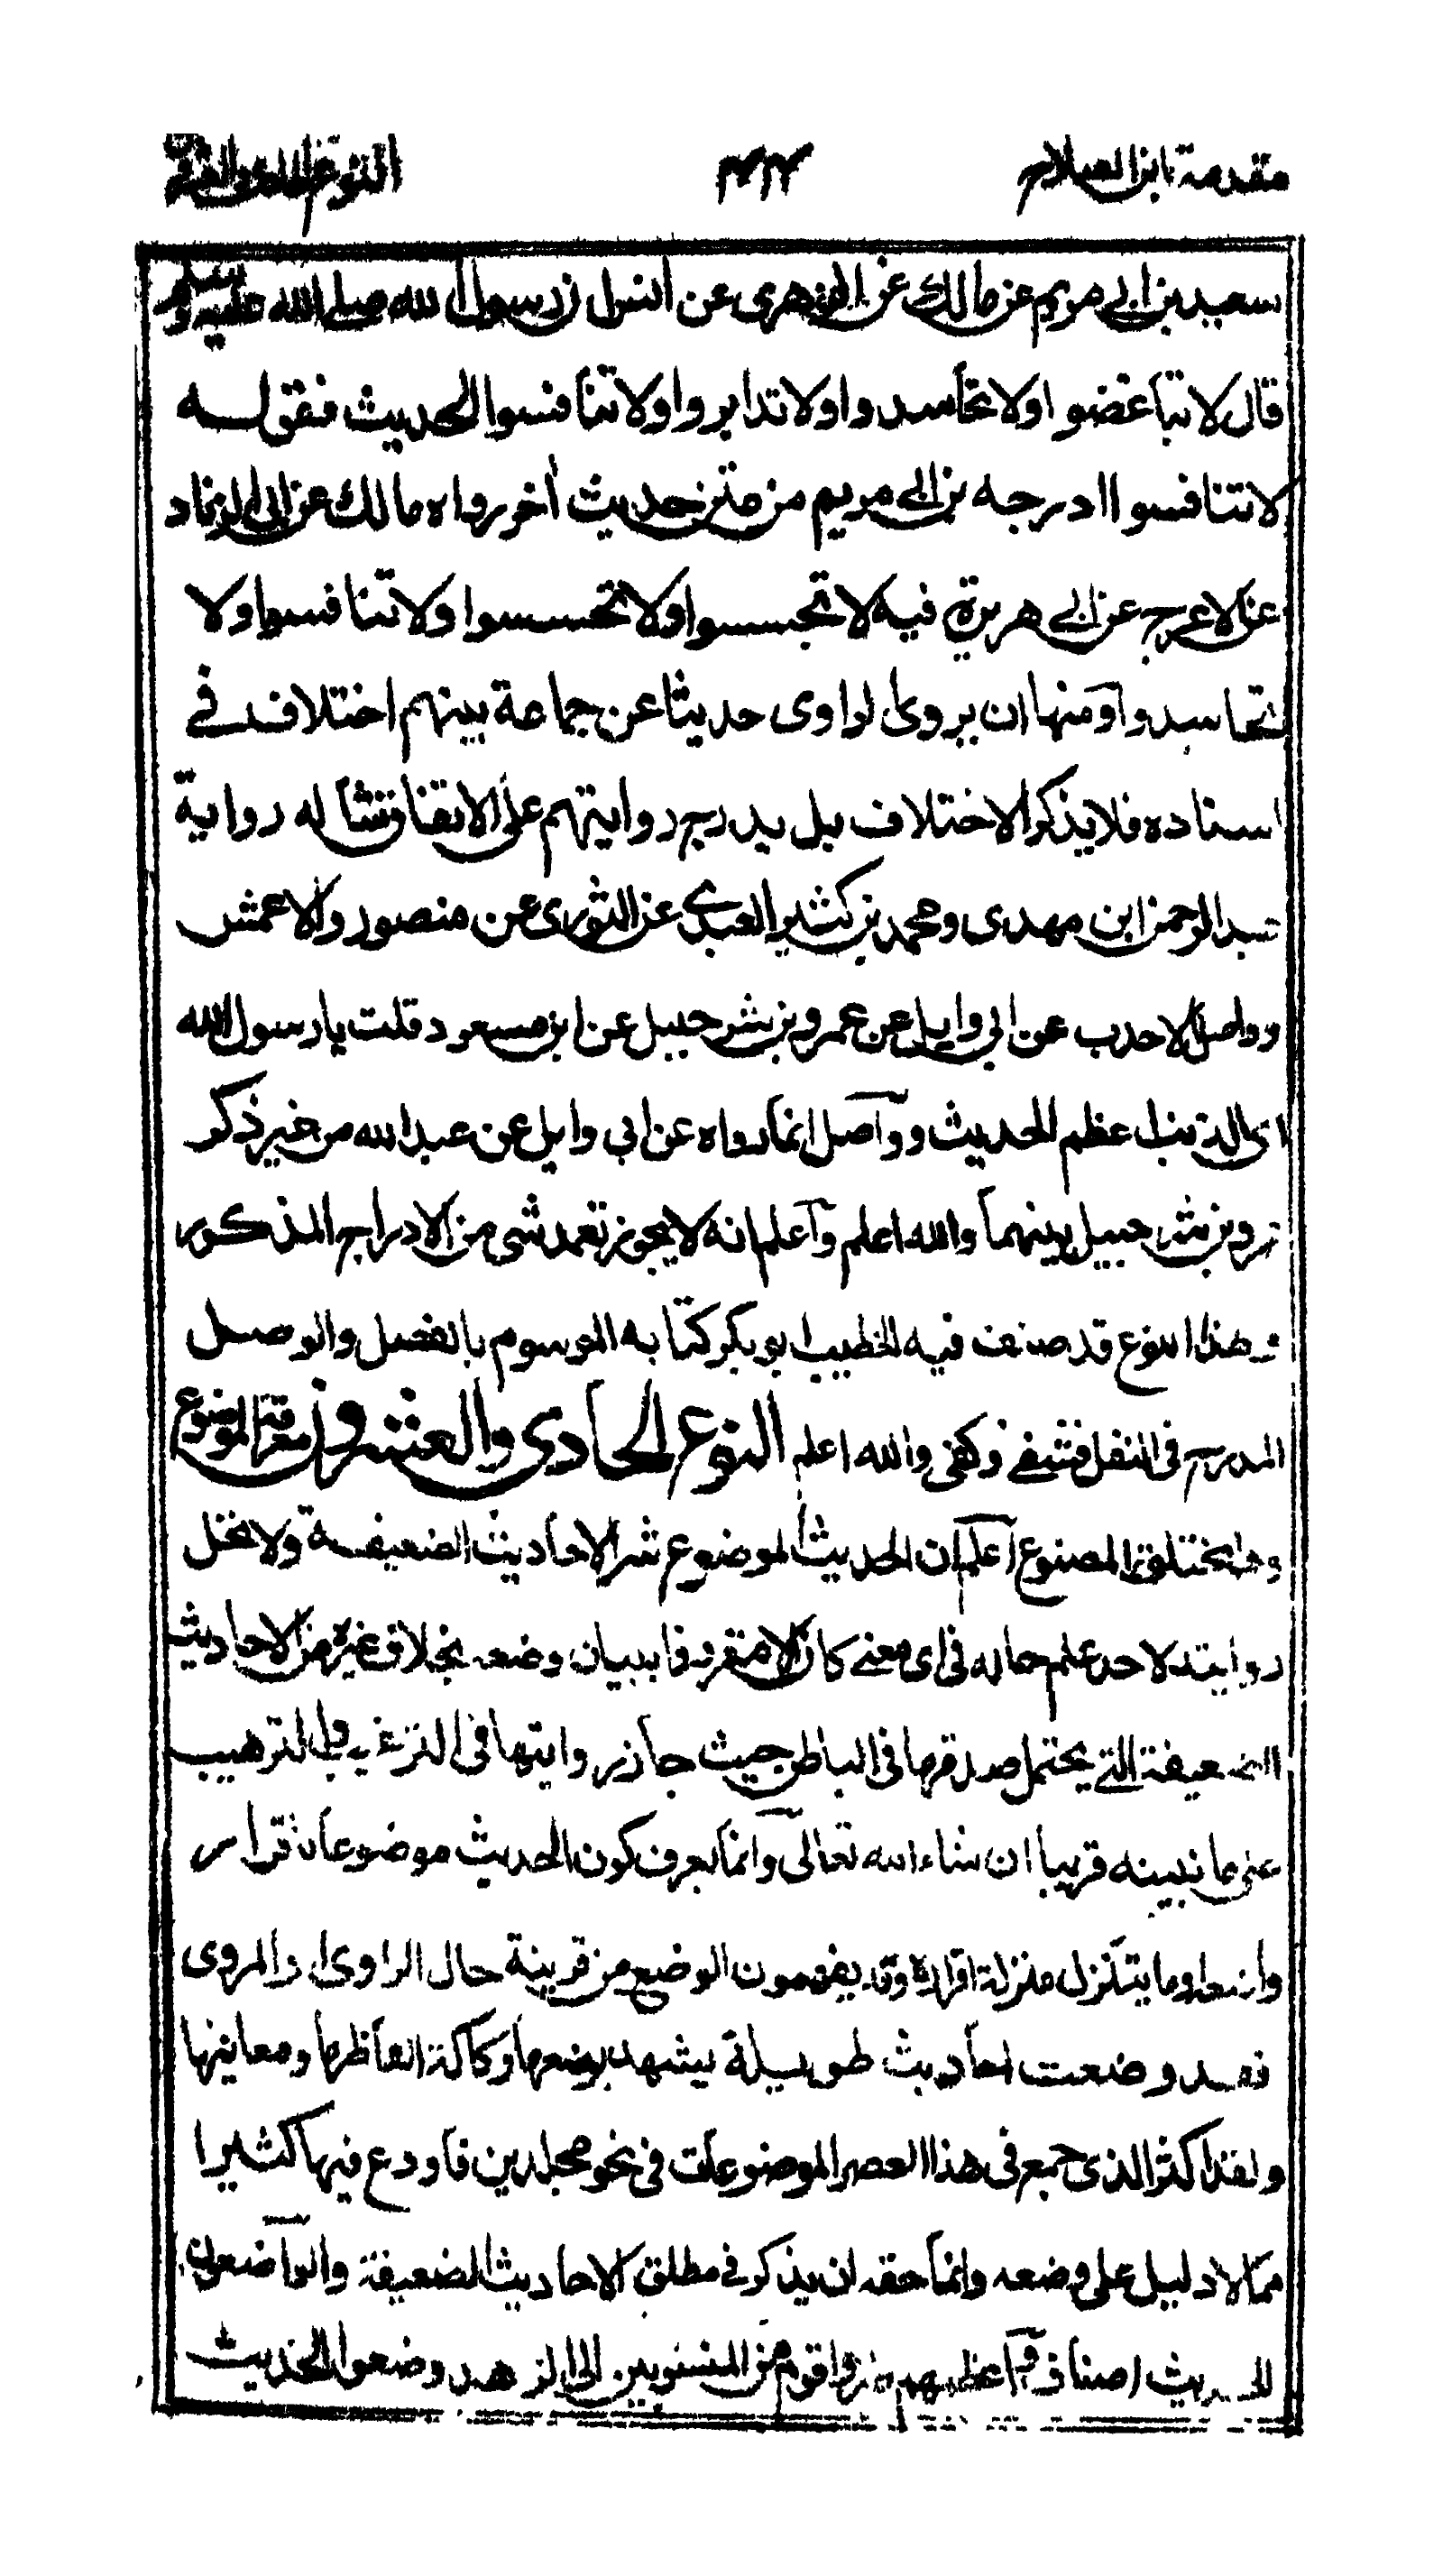 مقدمة ابن الصلاح ٤٤ النوع الحادى والعشرون
سعيد بن ابي مريم عن مالك عن الزهرى عن انس ان رسول الله صلى الله عليه وسلم
قال لا تباغضوا ولا تحاسدوا ولا تدابروا ولا تنافسوا الحديث فقوله
لا تنافسوا ادرجه بن ابي مريم من متن حديث آخر رواه مالك عن ابي الزناد
عن الاعرج عن ابي هريرة فيه لا تجسسوا ولا تحسسوا ولا تنافسوا ولا
تحاسدوا ومنها ان يروى الراوى حديثا عن جماعة بينهم اختلاف في
اسناده فلا يذكر الاختلاف بل يدرج روايتهم على الاتفاق مثاله رواية
عبد الرحمن ابن مهدى ومحمد بن كثير العبدي عن الثورى عن منصور والاعمش
وواصل الاحدب عن ابي وايل عن عمرو بن شرحبيل عن ابن مسعود قلت يا رسول الله
اى الذنب اعظم الحديث وواصل انما رواه عن ابي وايل عن عبد الله من غير ذكر
عمرو بن شرحبيل بينهما والله اعلم واعلم انه لا يجوز تعمد شى من الادراج المذكور
وهذا النوع قد صنف فيه الخطيب ابو بكر كتابه الموسوم بالفصل والوصل
المدرج فى النقل فشفى وكفى والله اعلم النوع الحادى والعشرون معرفة الموضوع
وهو المختلق المصنوع اعلم ان الحديث الموضوع شر الاحاديث الضعيفة ولا تحل
روايته لاحد علم حاله فى اى معنے كان الا مقرونا ببيان وضعه بخلاف غيره من الاحاديث
الضعيفة التے يحتمل صدقها فى الباطن حيث جاز روايتها فى الترغيب والترهيب
على ما نبينه قريبا ان شاء الله تعالى وانما يعرف كون الحديث موضوعا باقرار
واضعه او ما يتنزل منزلة اقراره وقد يفهمون الوضع من قرينة حال الراوى او المروى
فقد وضعت احاديث طويلة يشهد بوضعها ركاكة الفاظها ومعانيها
ولقد اكثر الذى جمع فى هذا العصر الموضوعات فى نحو مجلدين فاودع فيها كثيرا
مما لا دليل على وضعه وانما حقه ان يذكر فے مطلق الاحاديث الضعيفة والواضعون
للحديث اصناف واعظمهم ضررا قوم من المنسوبين الى الزهد وضعوا الحديث